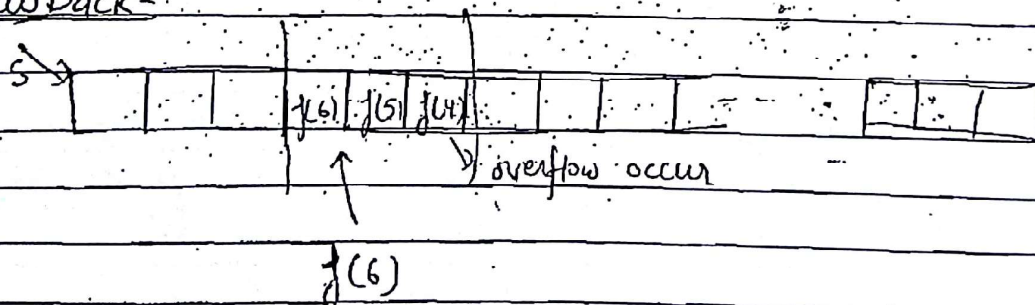 S
f(6) f(5) f(4)
overflow occur
f(6)